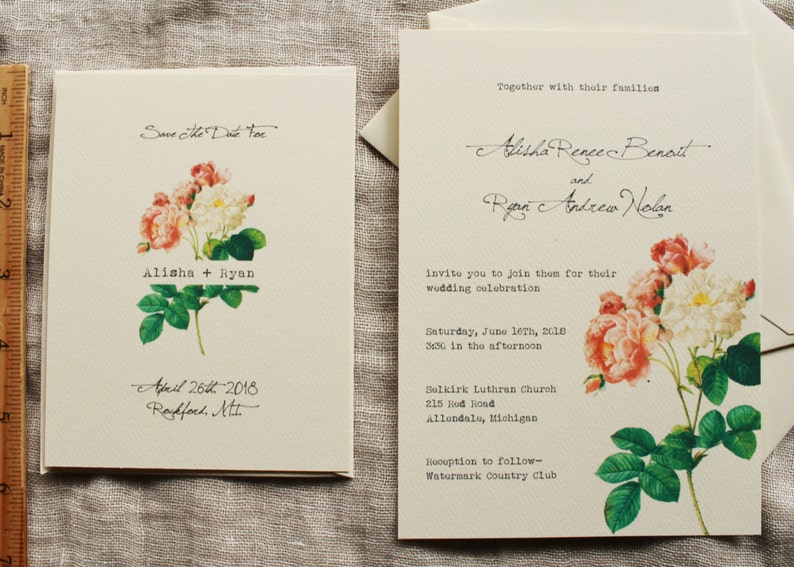 Save the Date For
Alisha + Ryan
April 26th, 2018
Rockford, MI
Together with their families
Alisha Renee Benoit
and
Ryan Andrew Nolan
invite you to join them for their
wedding celebration
Saturday, June 16Th, 2018
3:30 in the afternoon
Selkirk Luthran Church
215 Red Road
Allendale, Michigan
Reception to follow—
Watermark Country Club
INCH
1
MADE IN CHINA
2
3
4
5
6
7